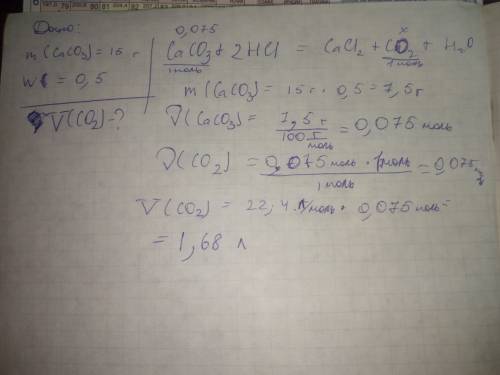 Дано:
m(CaCO3) = 15 г
W = 0,5
V(CO2) - ?
0,075 x
CaCO3 + 2HCl = CaCl2 + CO2 + H2O
1 моль 1 моль
m(CaCO3) = 15 г · 0,5 = 7,5 г
ν(CaCO3) = 7,5 г / 100 г/моль = 0,075 моль
ν(CO2) = 0,075 моль · 1 моль / 1 моль = 0,075
V(CO2) = 22,4 л/моль · 0,075 моль =
= 1,68 л